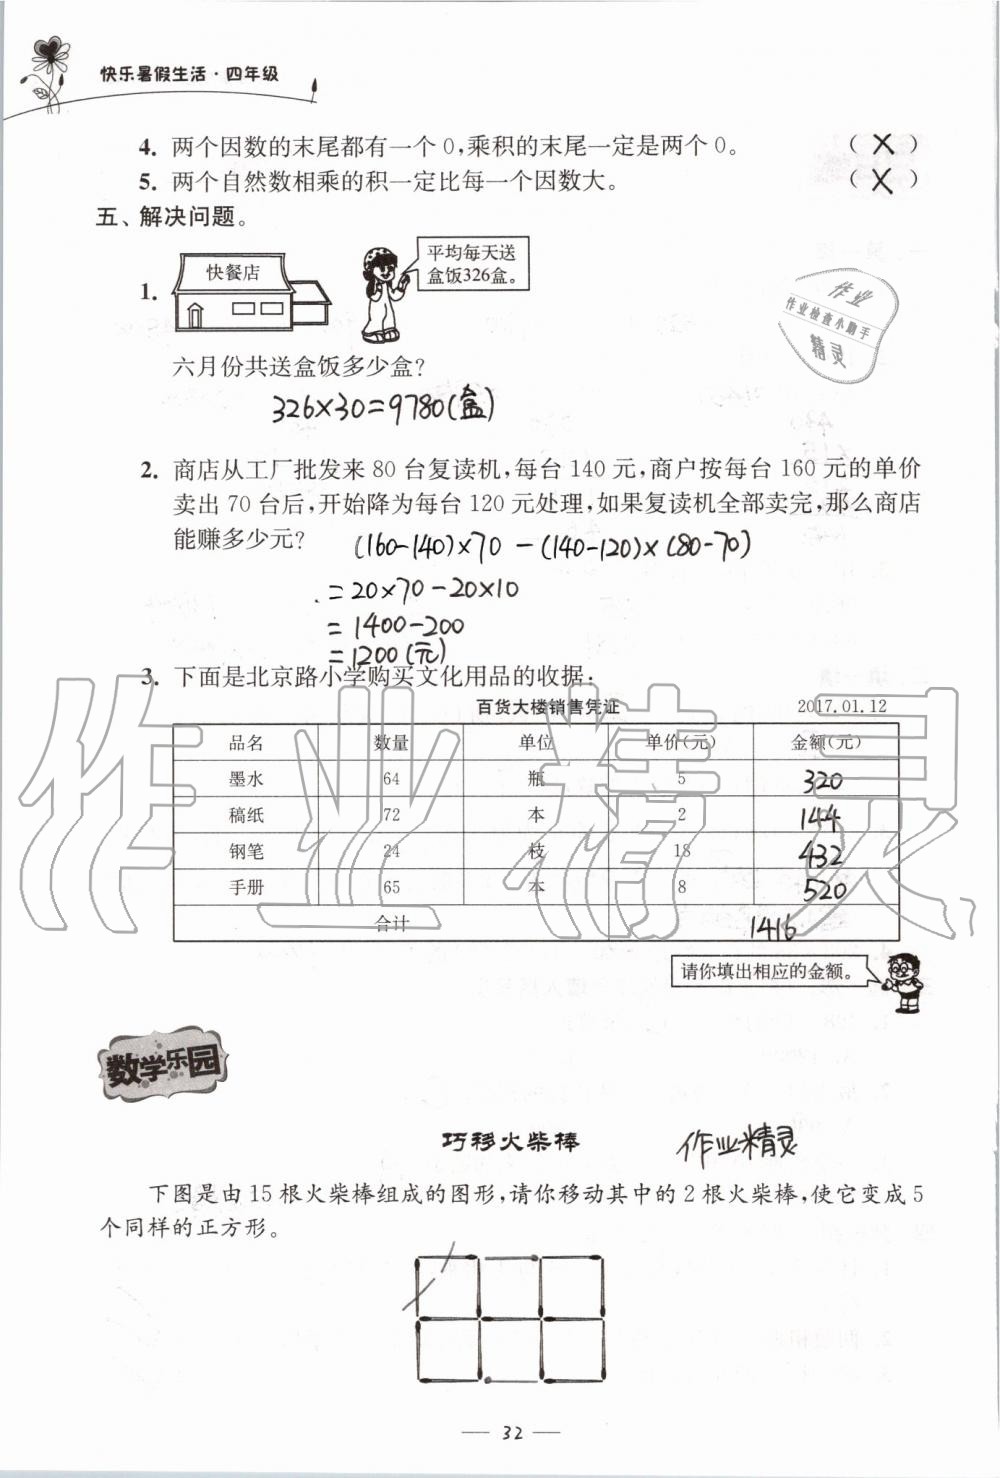 快乐暑假生活·四年级
4. 两个因数的末尾都有一个0,乘积的末尾一定是两个0。 (X)
5. 两个自然数相乘的积一定比每一个因数大。 (X)
五、解决问题。
快餐店
平均每天送
盒饭326盒。
1.
作业
作业检查小助手
精灵
六月份共送盒饭多少盒?
326×30=9780(盒)
2. 商店从工厂批发来80台复读机,每台140元,商户按每台160元的单价
卖出70台后,开始降为每台120元处理,如果复读机全部卖完,那么商店
能赚多少元?
(160-140)×70-(140-120)×(80-70)
=20×70-20×10
=1400-200
=1200(元)
3. 下面是北京路小学购买文化用品的收据:
百货大楼销售凭证 2017.01.12
品名 数量 单位 单价(元) 金额(元)
墨水 64 瓶 5 320
稿纸 72 本 2 144
钢笔 24 枝 18 432
手册 65 本 8 520
合计 1416
作业精灵
请你填出相应的金额。
数学乐园
巧移火柴棒
作业精灵
下图是由15根火柴棒组成的图形,请你移动其中的2根火柴棒,使它变成5
个同样的正方形。
— 32 —